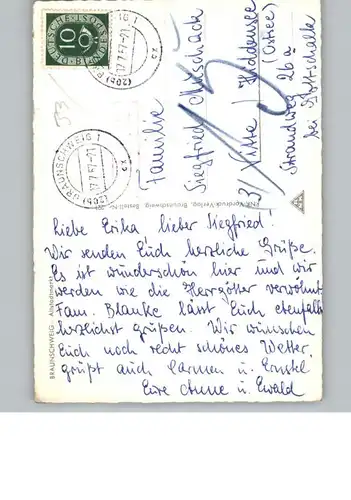 DEUTSCHE BUNDESPOST
10
BRAUNSCHWEIG 1
17.7.57.-21
(20b)
BRAUNSCHWEIG 1
17.7.57.-21
(20b)
53/
15
Familie
Siegfried
3/ Vitte / Hiddensee
(Ostsee)
Strandweg 26a
bei
BRAUNSCHWEIG Altstadtmarkt
Liebe Erika lieber Siegfried!
Wir senden Euch herzliche Grüße.
Es ist wunderschön hier und wir
werden wie die Herrgötter verwöhnt
Fam. Blanke lässt Euch ebenfalls
herzlichst grüßen. Wir wünschen
Euch noch recht schönes Wetter,
grüßt auch Carmen u. Ernstel
Eure Anne u. Ewald